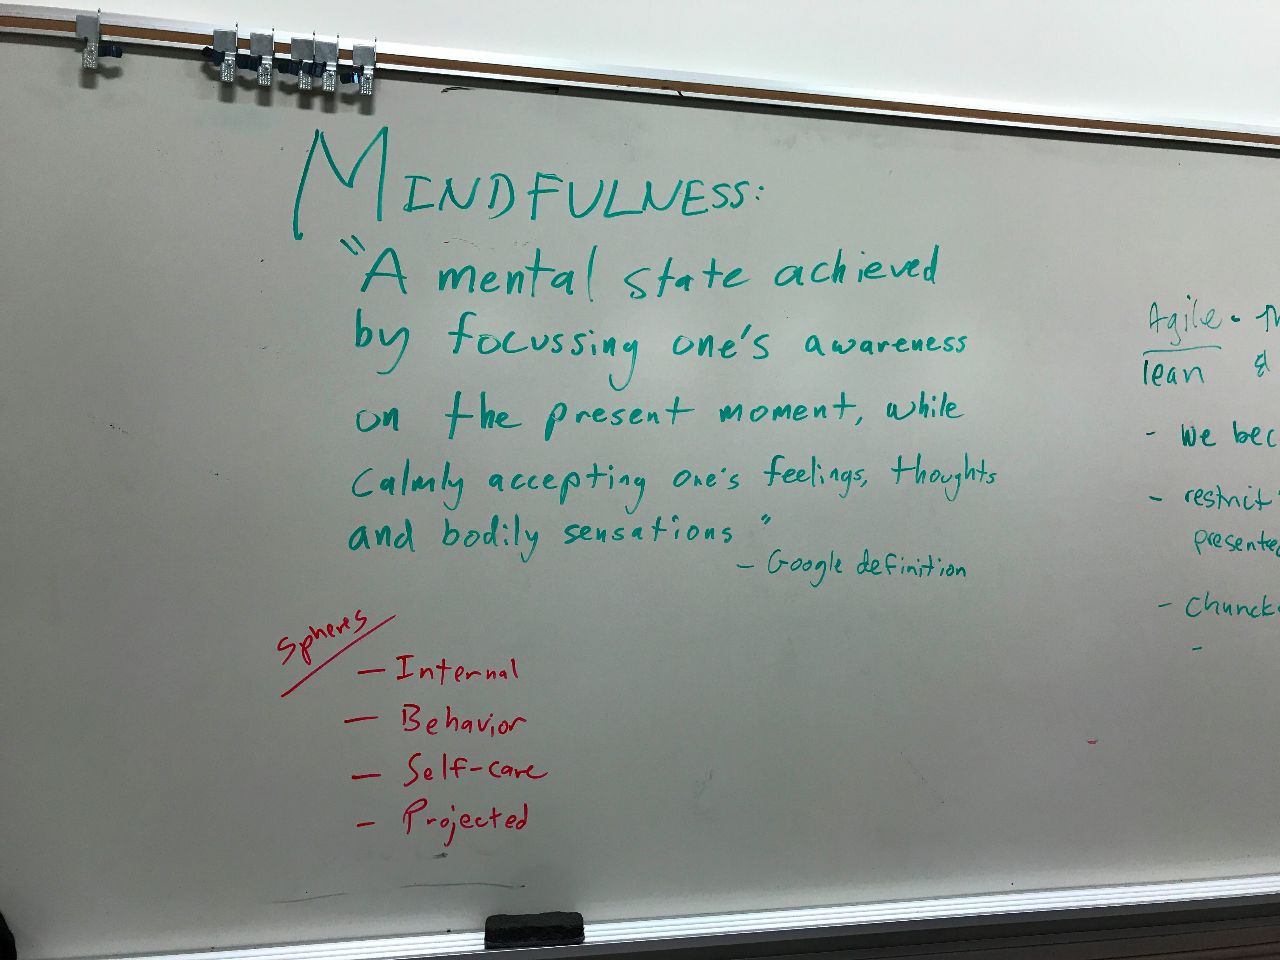 MINDFULNESS:
"A mental state achieved
by focussing one's awareness
on the present moment, while
calmly accepting one's feelings, thoughts
and bodily sensations"
- Google definition
Spheres
- Internal
- Behavior
- Self-care
- Projected
Agile -
lean &
- we bec
- restrict
presented
- Chunck
-